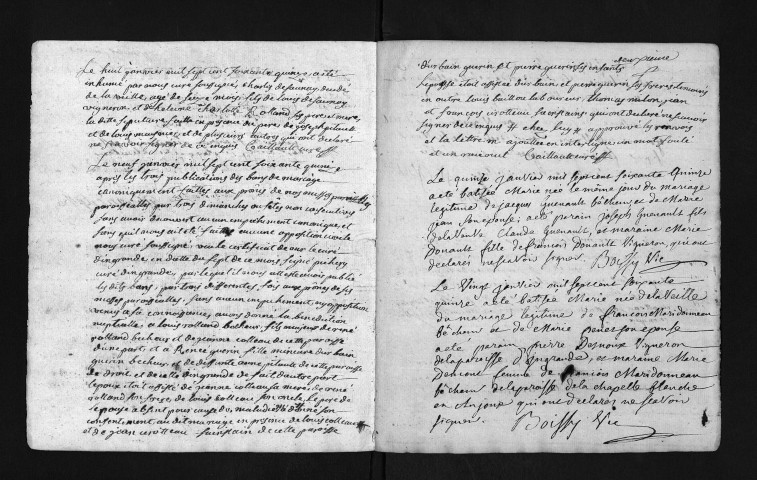 Le huit janvier mil sept cent soixante quinze a été
inhumé par nous curé soussigné charles delaunay decedé
de la veille, agé de seize mois, fils de louis delaunay
vigneron et de heleine charlotte rolland ses pere et mere,
la ditte sepulture faitte en presence du pere de joseph
et de louis et de plusieurs autres qui ont declaré
ne sçavoir signer de ce enquis Caillault curé
Le neuf janvier mil sept cent soixante quinze
apres les trois publications des bans de mariage
canoniquement faittes aux prones de nos messes paroissiales
par trois dimanches ou fêtes non consecutives
sans avoir decouvert aucun empechement canonique, et
sans qu'il nous ait été faitte aucune opposition vu le
curé soussigné vu le certificat de mr le curé
d'ingrande, en datte du sept de ce mois, signé
curé d'ingrande, par lequel il nous atteste avoir publié
les dits bans, par trois differentes fois aux prônes de ses
messes paroissialles, sans aucun empechement ny opposition
venus a sa connoissance, avons donné la benediction
nuptialle a louis rolland becheur, fils majeur de rené
rolland becheur et de jeanne cotteau de cette paroisse
d'une part, et a Renée guerin fille mineure d'urbain
guerin becheur, et de deffunte anne de cette paroisse
de droit, et de celle d'ingrande de fait d'autre part
l'epoux etoit assisté de jeanne cotteau sa mere, de rené
rolland son frere de louis cotteau son oncle, le pere de
l'epoux absent pour cause de maladie a donné son
consentement au dit mariage en presence de louis cotteau
et de jean cotteau de cette paroisse
d'urbain guerin et pierre guerin ses
l'epouse etoit assistée d'urbain et pierre guerin ses freres temoins
en outre louis baillou laboureur, thomas milon, jean
et françois qui ont declaré ne sçavoir
signer de ce enquis approuvé les renvois
et la lettre m ajoutée en interligne un mot
et un Caillault curé
Le quinze janvier mil sept cent soixante Quinze
a eté batisée Marie née le même jour du mariage
legitime de jacques guenault bêcheur et de Marie
jean son epouse, a eté parain joseph Guenault fils
de la veuve Claude Guenault, et maraine Marie
Donault fille de françois Donault Vigneron, qui ont
declarés ne sçavoir signer. Boissy Vic
Le Vingt janvier mil sept cent soixante
quinze a eté batisée Marie née de la Veille
du mariage legitime de françois Maridonneau
bêcheur et de Marie son epouse
a eté parain pierre Desnoux Vigneron
de la paroisse d'Ingrande, et maraine Marie
femme de françois Maridonneau
bêcheur de la paroisse de la chapelle blanche
en Anjou qui ont declarés ne sçavoir
signer. Boissy Vic